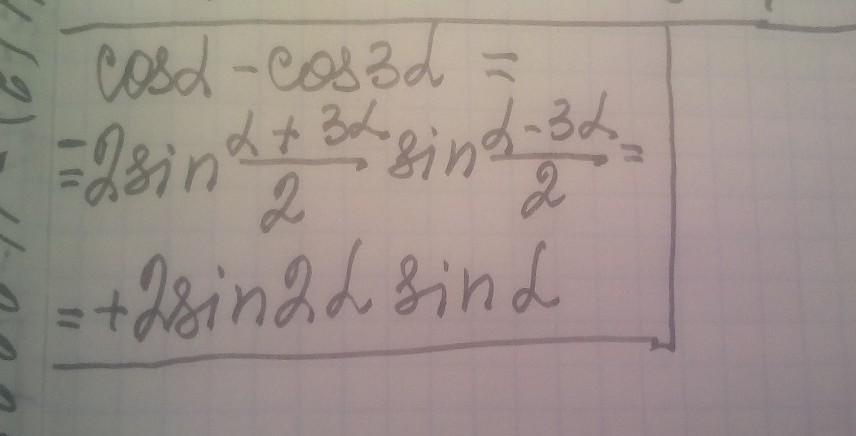 cosα - cos3α =
= 2sin (α + 3α)/2 sin (α - 3α)/2 =
= +2sin2α sinα